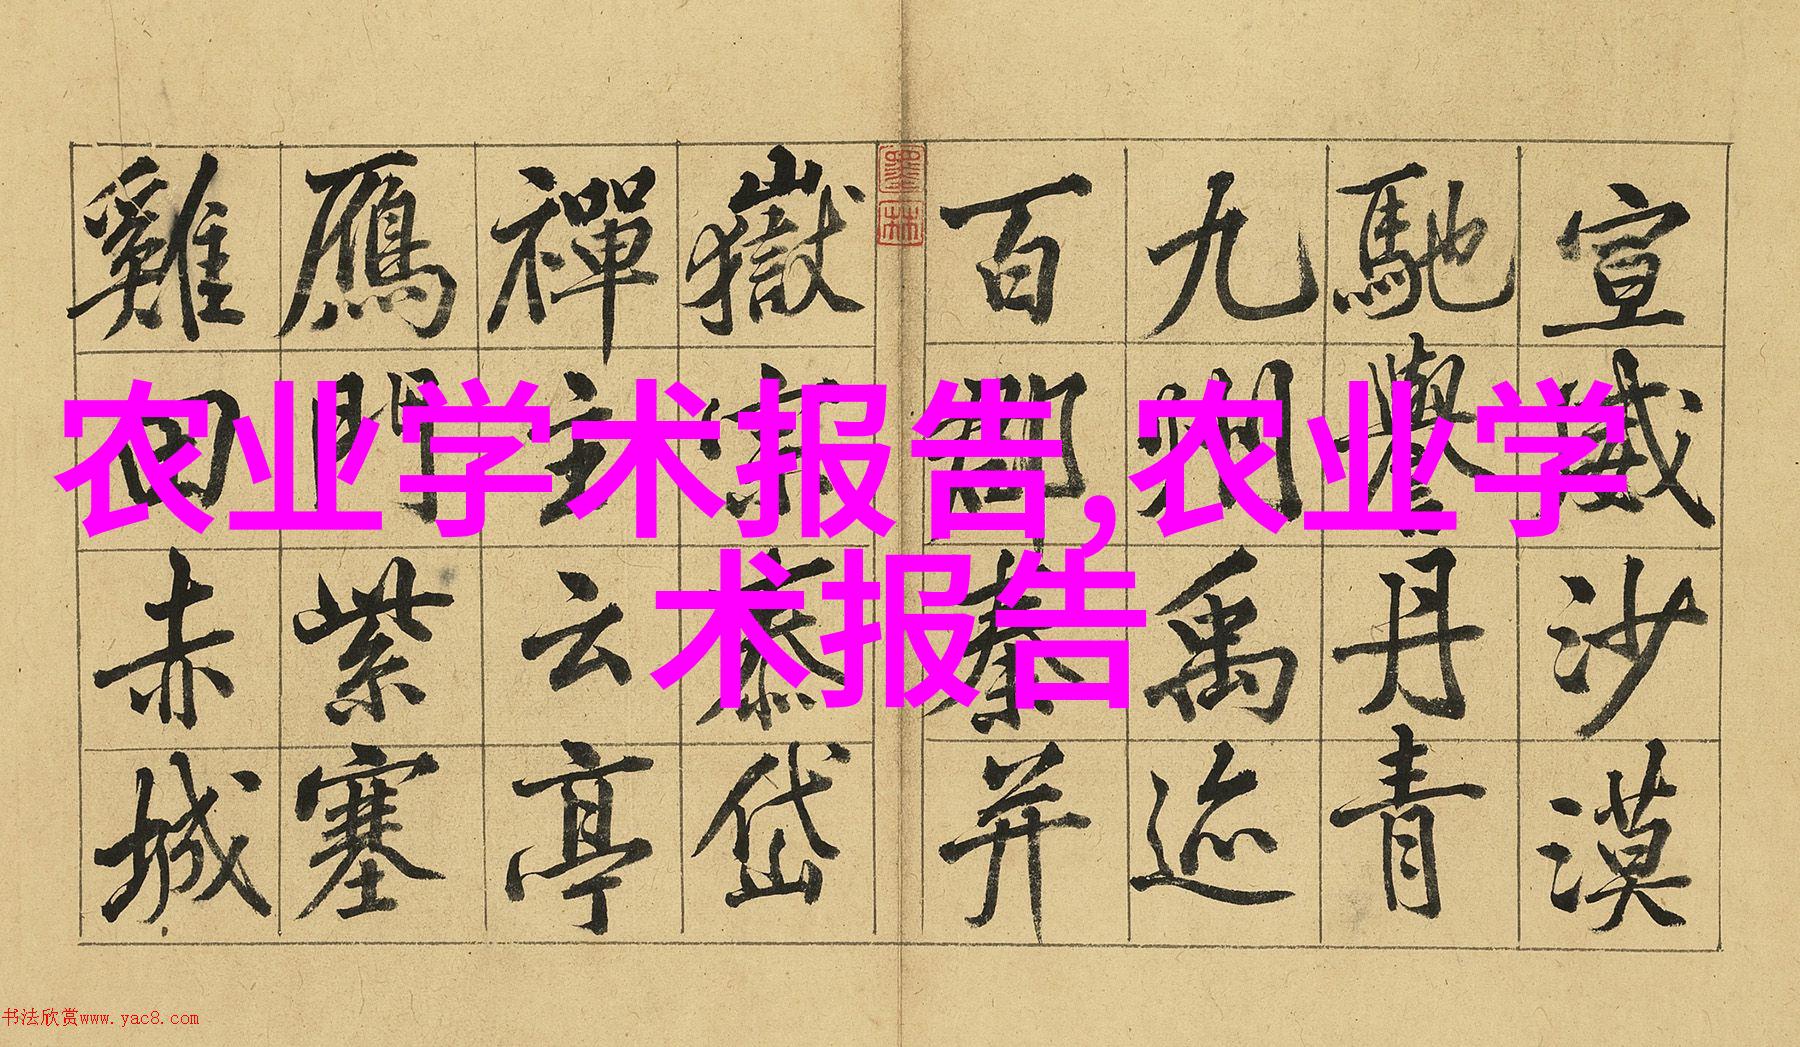 农业学术报告,农业学
术报告
宣威沙漠
馳譽丹青
九州禹迹
百郡秦并
墨林
嶽宗岱
禪主云亭
鴈門紫塞
雞田赤城
书法欣赏www.yac8.com